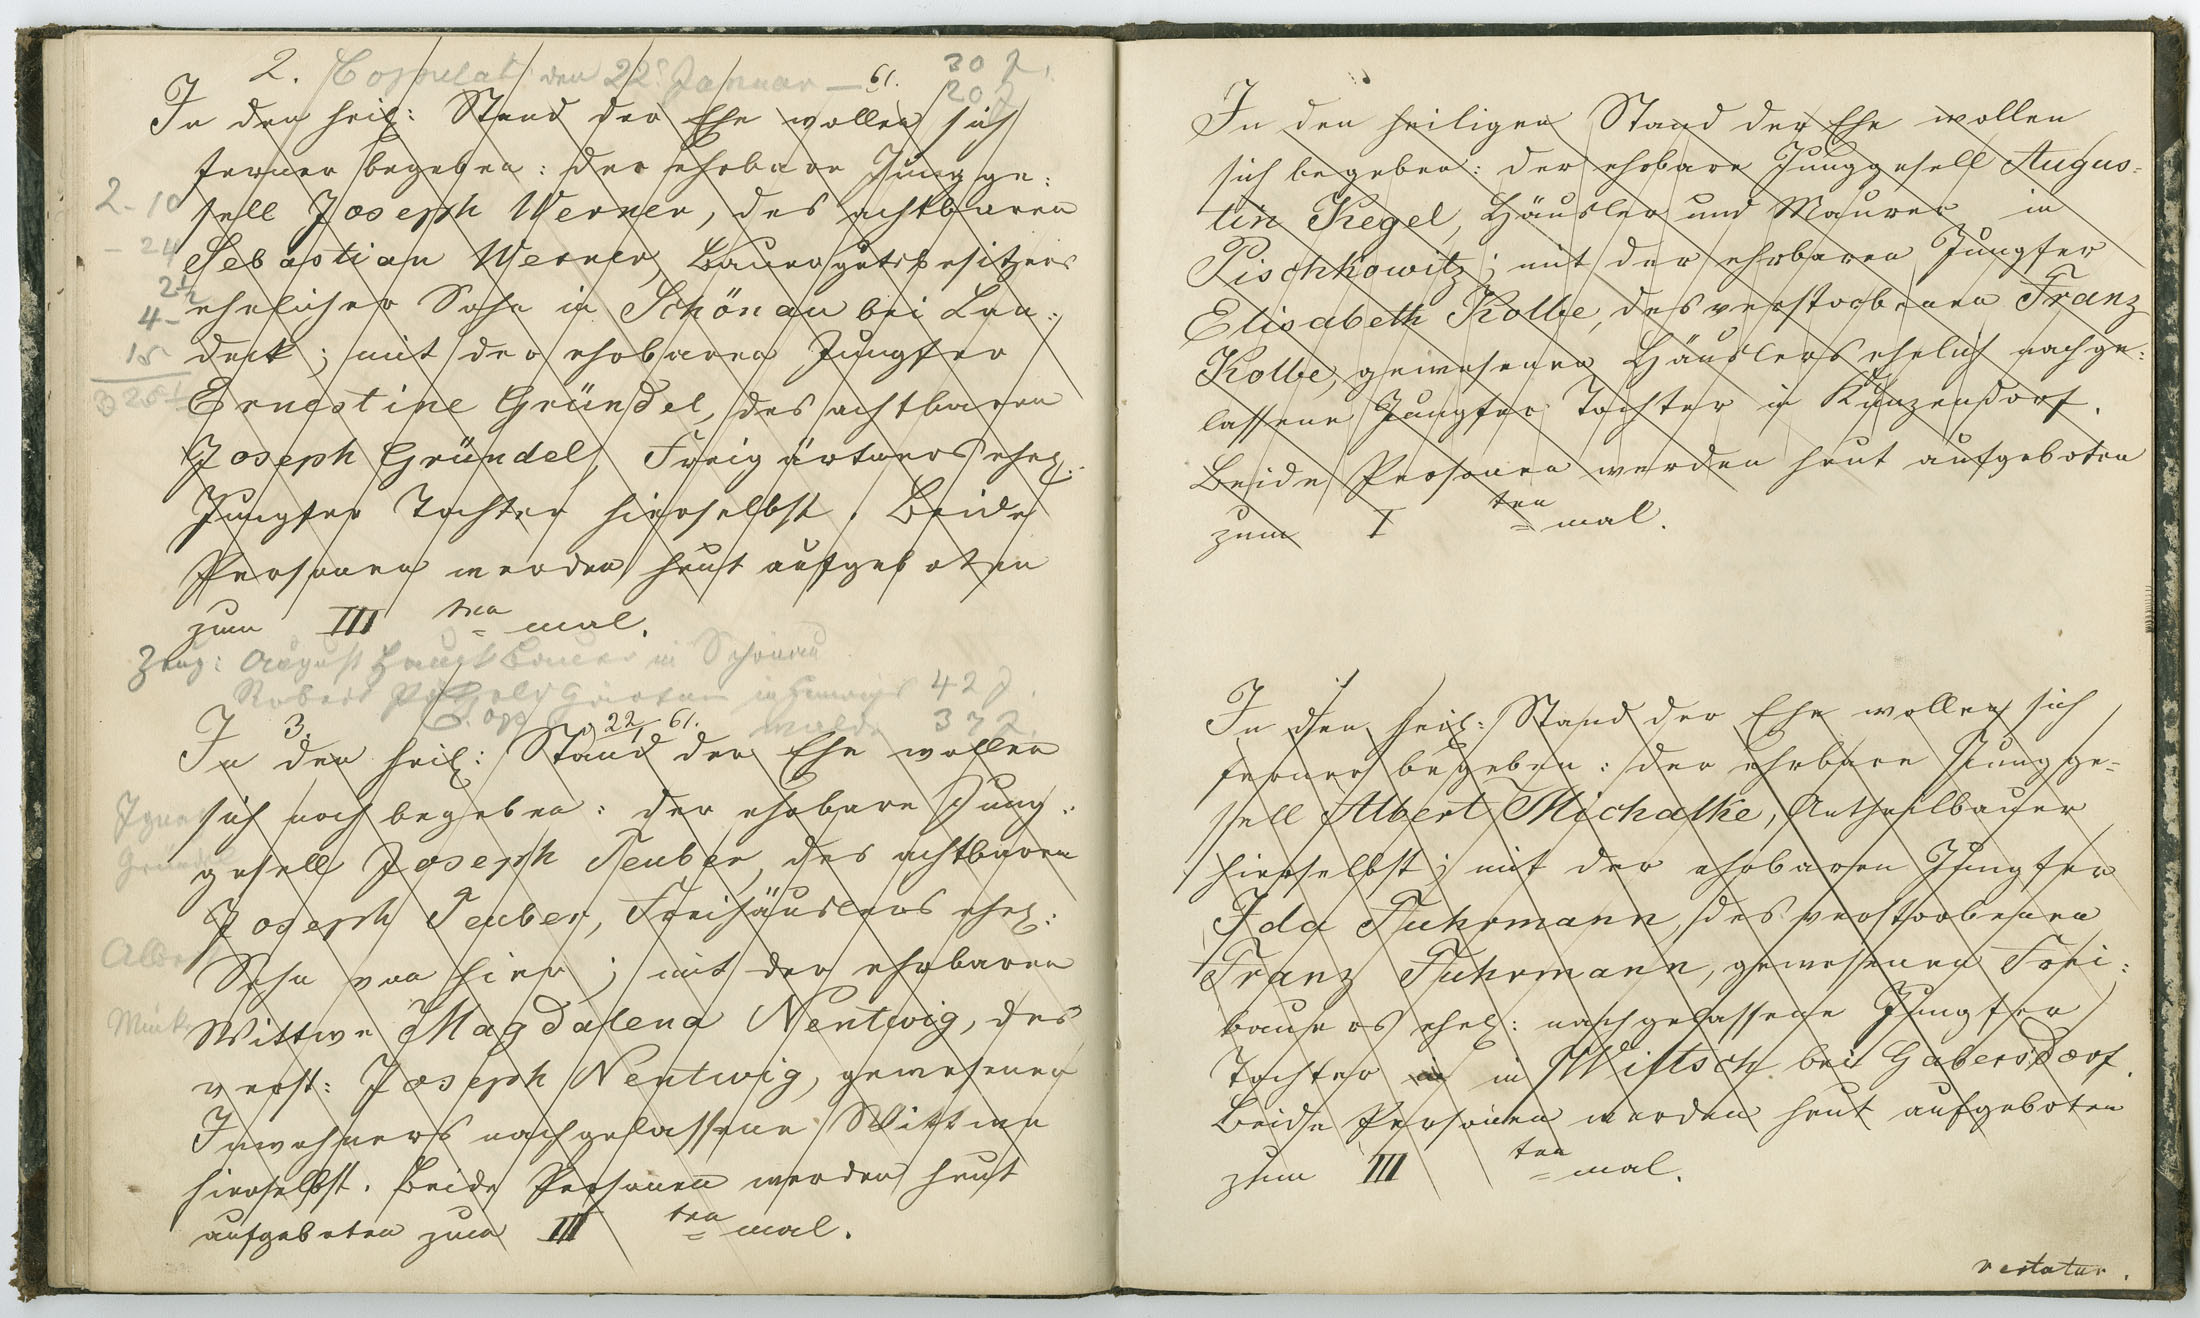 2. Copulat: den 22t Januar — 61. 30 J.
20 J
In den heil: Stand der Ehe wollen sich
ferner begeben: der ehrbare Jungge:
sell Joseph Werner, des achtbaren
Sebastian Werner, Bauergutsbesitzers
ehelicher Sohn in Schönau bei Lan:
deck; mit der ehrbaren Jungfer
Ernestine Gründel, des achtbaren
Joseph Gründel, Freigärtners ehel:
Jungfer Tochter hierselbst. Beide
Personen werden heut aufgeboten
zum III ten mal.
2-10
- 24
2 1/2
4-
15
Zeug: August Bauer in Schönau
Robert 42 J.
walde 37 J.
3. 22/1 61.
In den heil: Stand der Ehe wollen
sich noch begeben: der ehrbare Jung:
gesell Joseph Teuber, des achtbaren
Joseph Teuber, Freihäuslers ehel:
Sohn von hier; mit der ehrbaren
Wittwe Magdalena Nentwig, des
verst: Joseph Nentwig, gewesenen
Inwohners nachgelassene Wittwe
hierselbst. Beide Personen werden heut
aufgeboten zum III ten mal.
In den heiligen Stand der Ehe wollen
sich begeben: der ehrbare Junggesell Augus-
tin Kegel, Häusler und Maurer in
Pischkowitz; mit der ehrbaren Jungfer
Elisabeth Kolbe, des verstorbenen Franz
Kolbe, gewesenen Häuslers ehelich nachge:
lassene Jungfer Tochter in Kunzendorf.
Beide Personen werden heut aufgeboten
zum I ten mal.
In den heil: Stand der Ehe wollen sich
ferner begeben: der ehrbare Jungge-
sell Albert Michalke, Antheilbauer
hierselbst; mit der ehrbaren Jungfer
Ida Fuhrmann, des verstorbenen
Franz Fuhrmann, gewesenen Frei:
bauers ehel: nachgelassene Jungfer
Tochter in Wiltsch bei Gabersdorf.
Beide Personen werden heut aufgeboten
zum III ten mal.
vertatur.